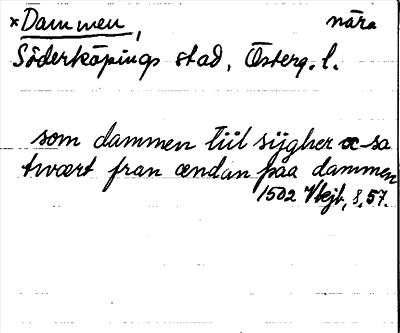 *Dammen, nära
Söderköpings stad, Österg. l.
som dammen tiil sijgher æ sa
twært fran ændan paa dammen
1502 Vkjb, 8, 57.